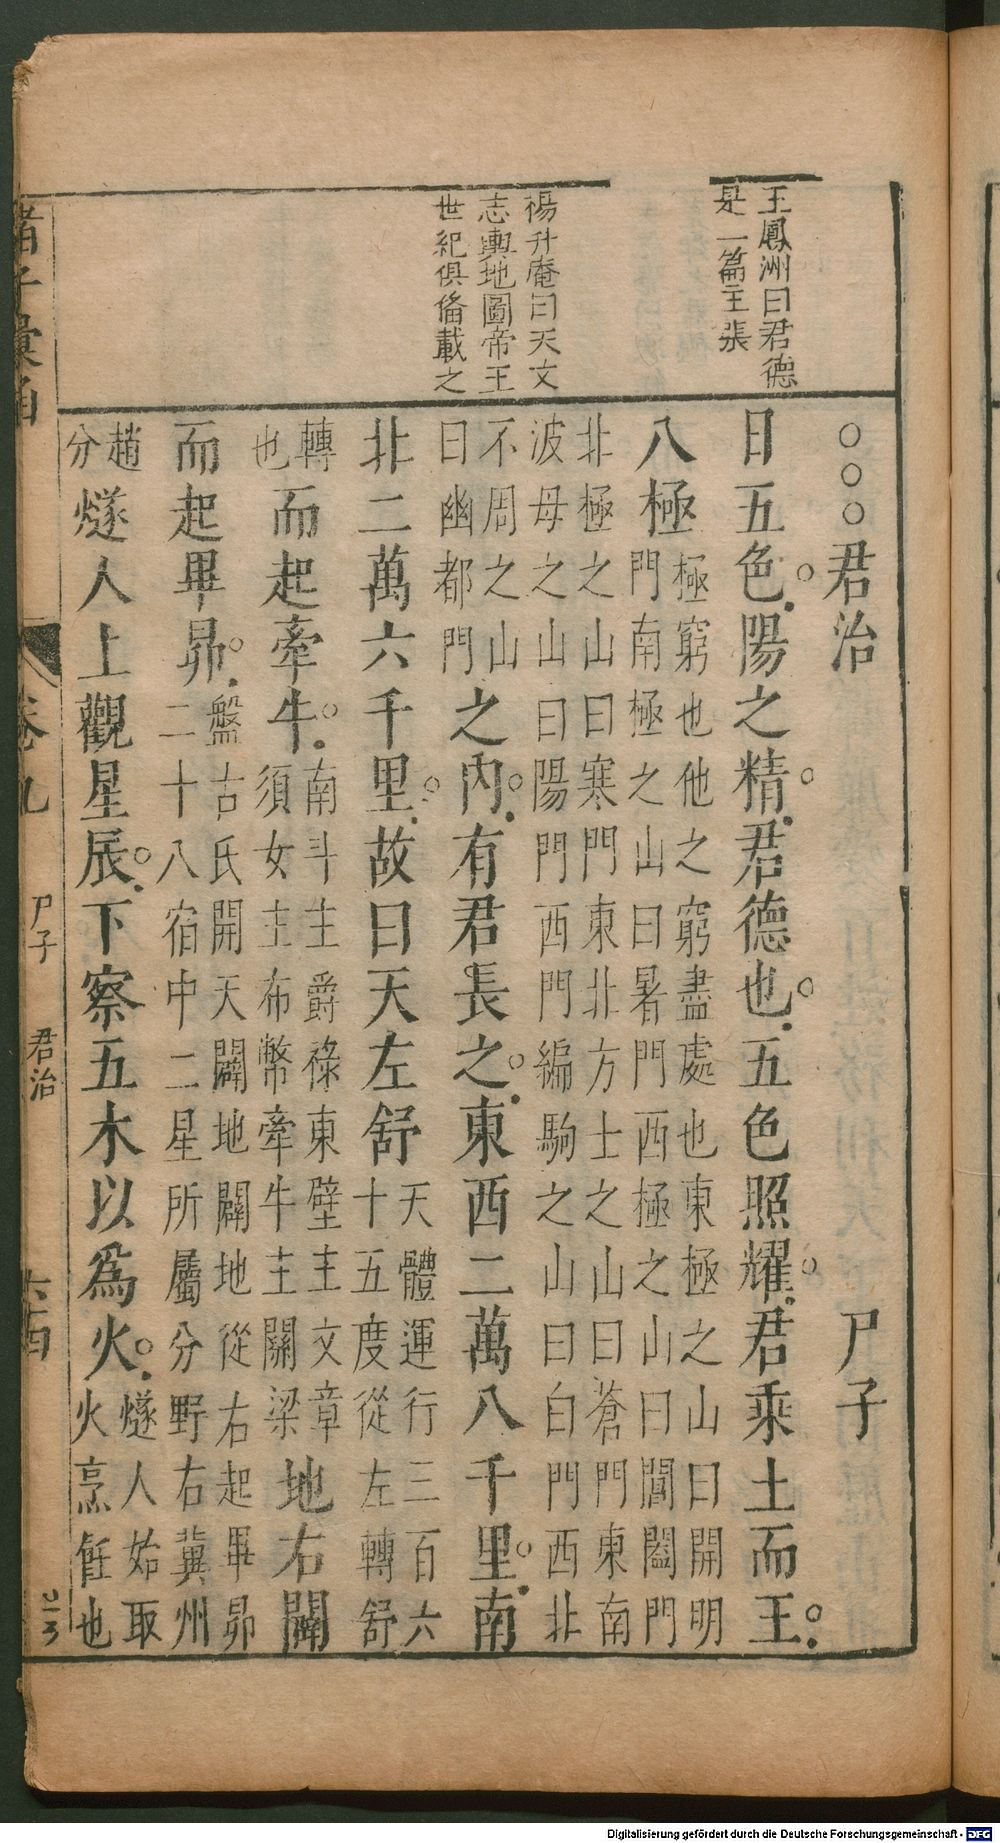 王鳳洲曰君德
是一篇主張
楊升庵曰天文
志輿地圖帝王
世紀俱俻載之
○○○君治 尸子
日五色。陽之精。君德也。五色照耀。君乘土而王。
八極 極窮也他之窮盡處也東極之山曰開明
門南極之山曰暑門西極之山曰閶闔門
北極之山曰寒門東北方士之山曰蒼門東南
波母之山曰陽門西門編駒之山曰白門西北
不周之山
曰幽都門 之內。有君長之。東西二萬八千里。南
北二萬六千里。故曰天左舒 天體運行三百六
十五度從左轉舒
轉
也 而起牽牛。 南斗主爵祿東壁主文章
須女主布幣牽牛主關梁 地右闢
而起畢昴。 盤古氏開天闢地闢地從右起畢昴
二十八宿中二星所屬分野右冀州
趙
分 燧人上觀星辰。下察五木以爲火。 燧人始取
火烹飪也
諸子彙函 卷九 尸子 君治
Digitalisierung gefördert durch die Deutsche Forschungsgemeinschaft - DFG